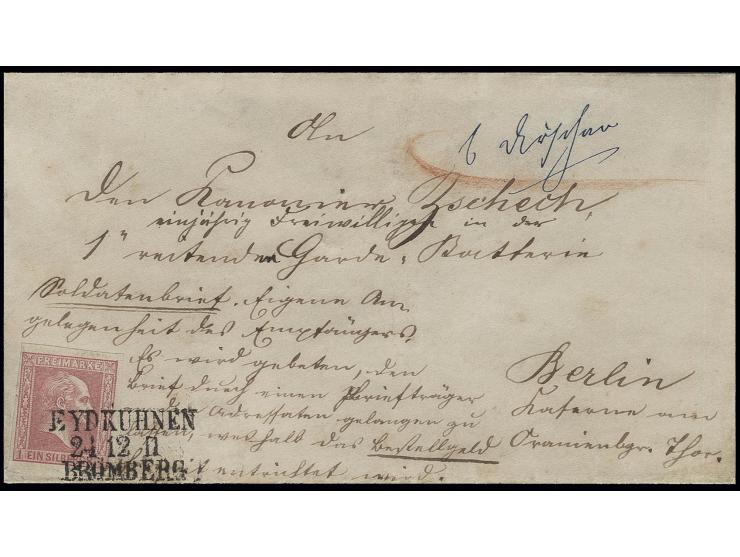 An
Den Kanonier Zschech,
einjährig Freiwilliger in der
1" reitenden Garde-Batterie
Soldatenbrief. Eigene An-
gelegenheit des Empfängers.
Es wird gebeten, den
Brief durch einen Briefträger
Adressaten gelangen zu
lassen, weshalb das Bestellgeld
entrichtet wird.
Berlin
Kaserne am
Oranienbgr. Thor.
FREIMARKE
EIN SILB
EYDKUHNEN
24 12 II
BROMBERG